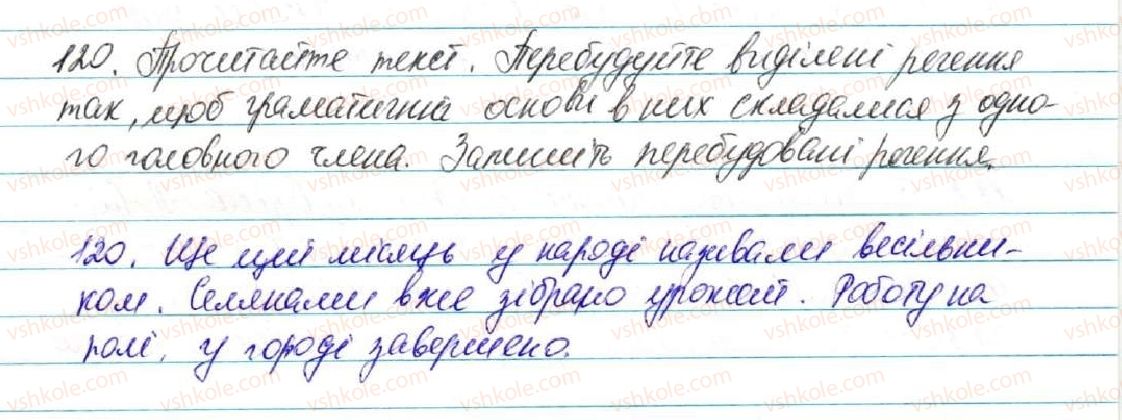 120. Прочитайте текст. Перебудуйте виділені речення
так, щоб граматичні основи в них складалися з одно-
го головного члена. Запишіть перебудовані речення.
120. Ще цей місяць у народі називали весільни-
ком. Селянами вже зібрано урожай. Роботу на
полі, у городі завершено.